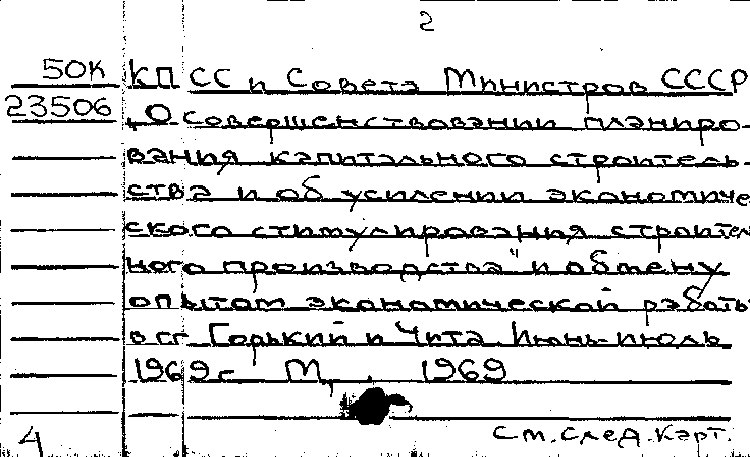 2
50К КПСС и Совета Министров СССР
23506 „О совершенствовании планиро-
вания капитального строитель-
ства и об усилении экономиче
ского стимулирования строител
ного производства" и обмену
опытом экономической работы
в гг Горький и Чита. Июнь-июль
1969г. М., 1969
См. след. карт.
4